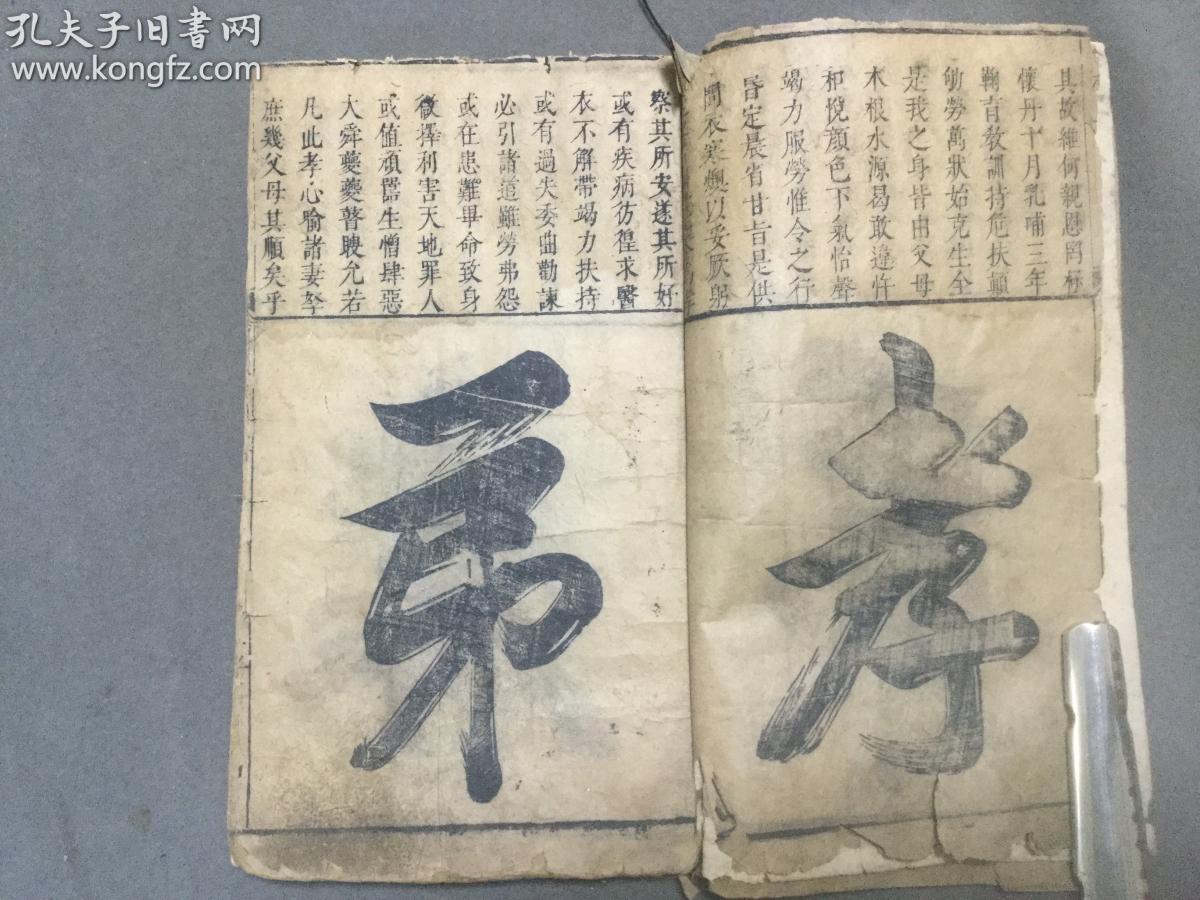 孔夫子旧书网
www.kongfz.com
其故維何親恩罔極
懷丹十月乳哺三年
鞠育教訓持危扶顛
劬勞萬狀始克生全
是我之身皆由父母
木根水源曷敢違忤
和悅顏色下氣怡聲
竭力服勞惟令之行
昏定晨省甘旨是供
問衣寒燠以妥厥躬
孝
察其所安遂其所好
或有疾病彷徨求醫
衣不解帶竭力扶持
或有過失委曲勸諫
必引諸道雖勞弗怨
或在患難畢命致身
徼擇利害天地罪人
或值頑嚚生憎肆惡
大舜夔夔瞽瞍允若
凡此孝心喻諸妻孥
庶幾父母其順矣乎
弟